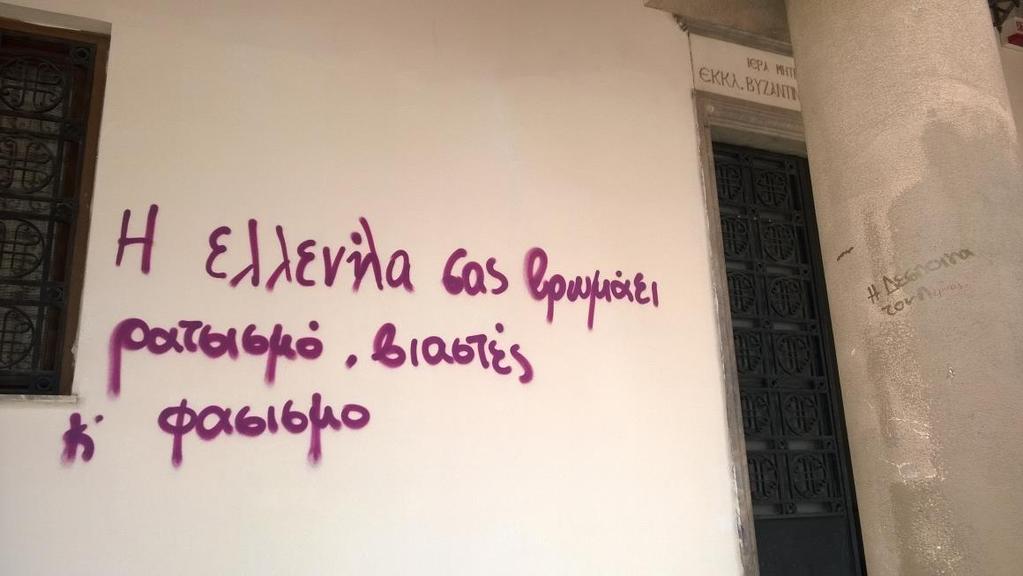 Η ελλενήλα σας βρωμάει
ρατσισμό, βιαστές
κ' φασισμο
ΙΕΡΑ ΜΗΤΡ
ΕΚΚΛ. ΒΥΖΑΝΤΙΝ
Η Δέσποινα
του